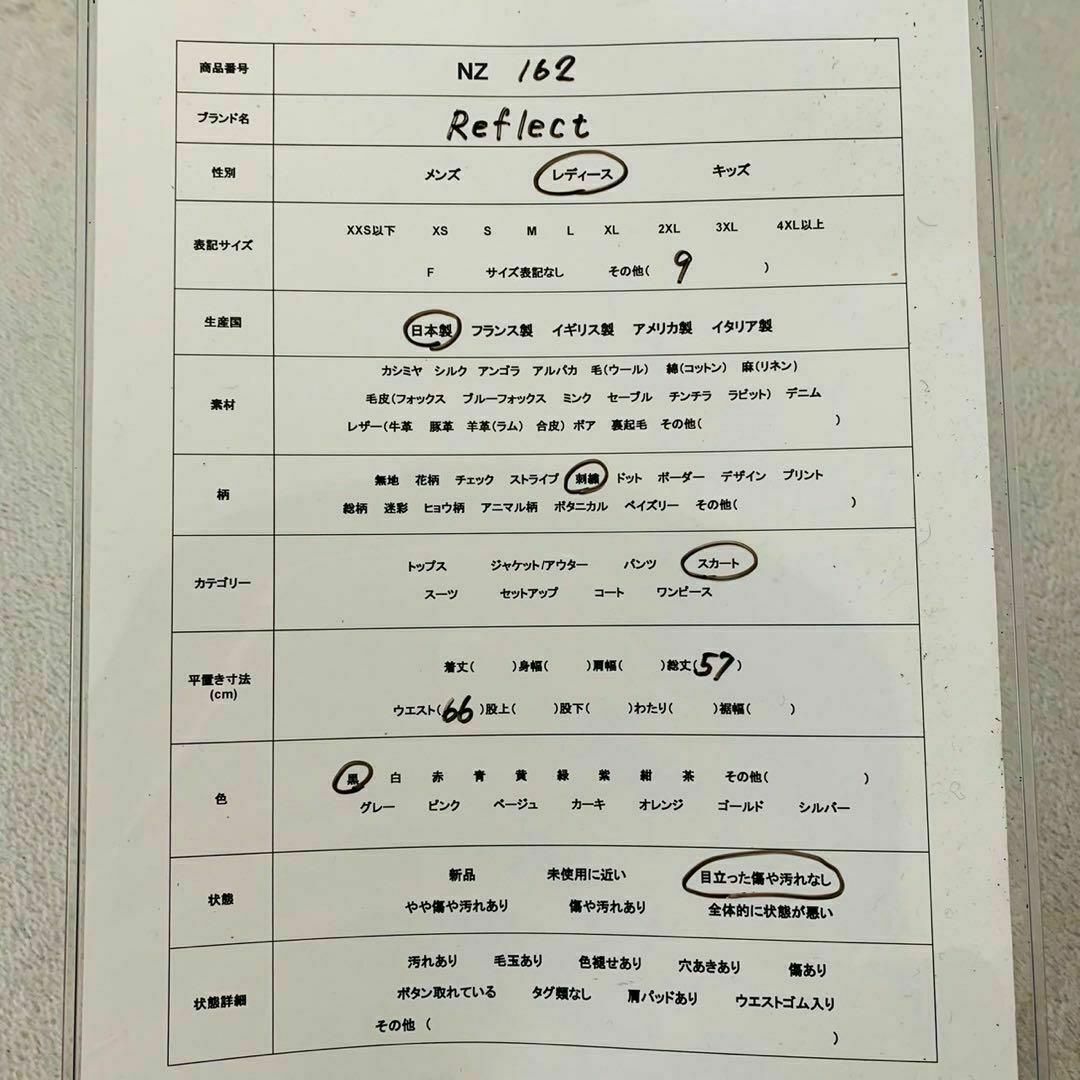 商品番号 NZ 162
ブランド名 Reflect
性別 メンズ レディース キッズ
XXS以下 XS S M L XL 2XL 3XL 4XL以上
表記サイズ
F サイズ表記なし その他( 9 )
生産国 日本製 フランス製 イギリス製 アメリカ製 イタリア製
カシミヤ シルク アンゴラ アルパカ 毛(ウール) 綿(コットン) 麻(リネン)
素材 毛皮(フォックス ブルーフォックス ミンク セーブル チンチラ ラビット) デニム
レザー(牛革 豚革 羊革(ラム) 合皮) ボア 裏起毛 その他( )
無地 花柄 チェック ストライプ 刺繍 ドット ボーダー デザイン プリント
柄
総柄 迷彩 ヒョウ柄 アニマル柄 ボタニカル ペイズリー その他( )
トップス ジャケット/アウター パンツ スカート
カテゴリー
スーツ セットアップ コート ワンピース
着丈( )身幅( )肩幅( )総丈(57)
平置き寸法
(cm)
ウエスト(66)股上( )股下( )わたり( )裾幅( )
黒 白 赤 青 黄 緑 紫 紺 茶 その他( )
色
グレー ピンク ベージュ カーキ オレンジ ゴールド シルバー
新品 未使用に近い 目立った傷や汚れなし
状態
やや傷や汚れあり 傷や汚れあり 全体的に状態が悪い
汚れあり 毛玉あり 色褪せあり 穴あきあり 傷あり
状態詳細 ボタン取れている タグ類なし 肩パッドあり ウエストゴム入り
その他 ( )